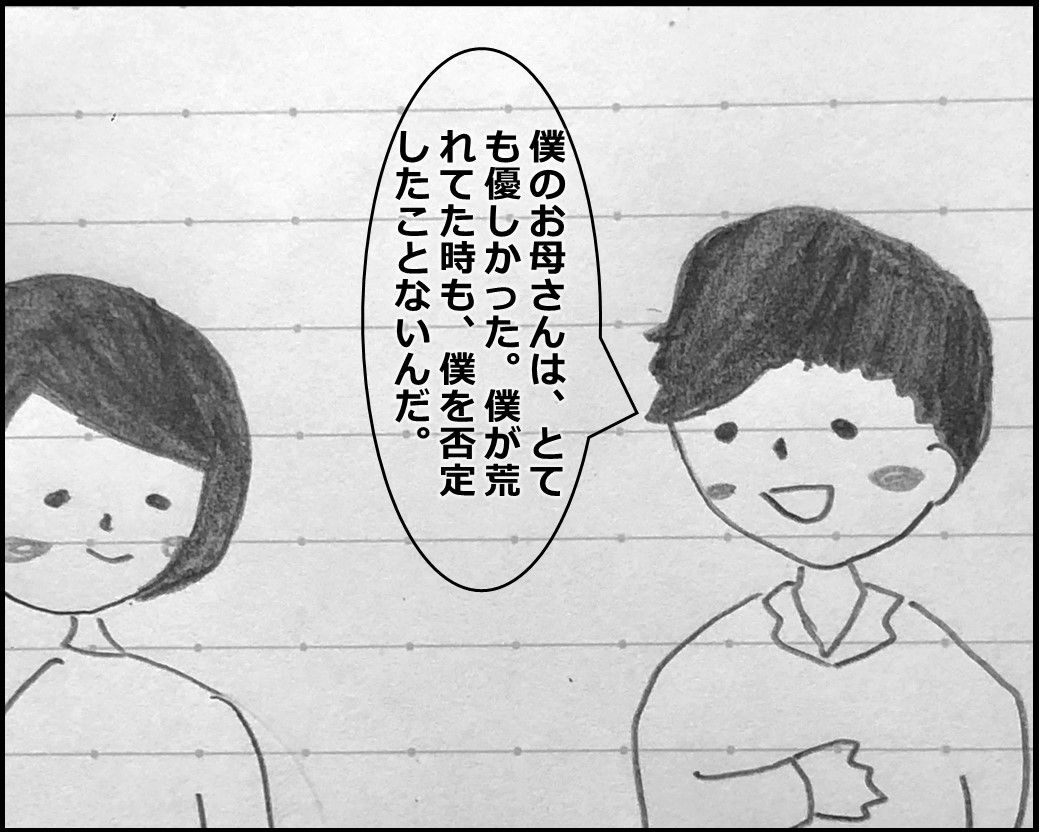 僕のお母さんは、とて
も優しかった。僕が荒
れてた時も、僕を否定
したことないんだ。